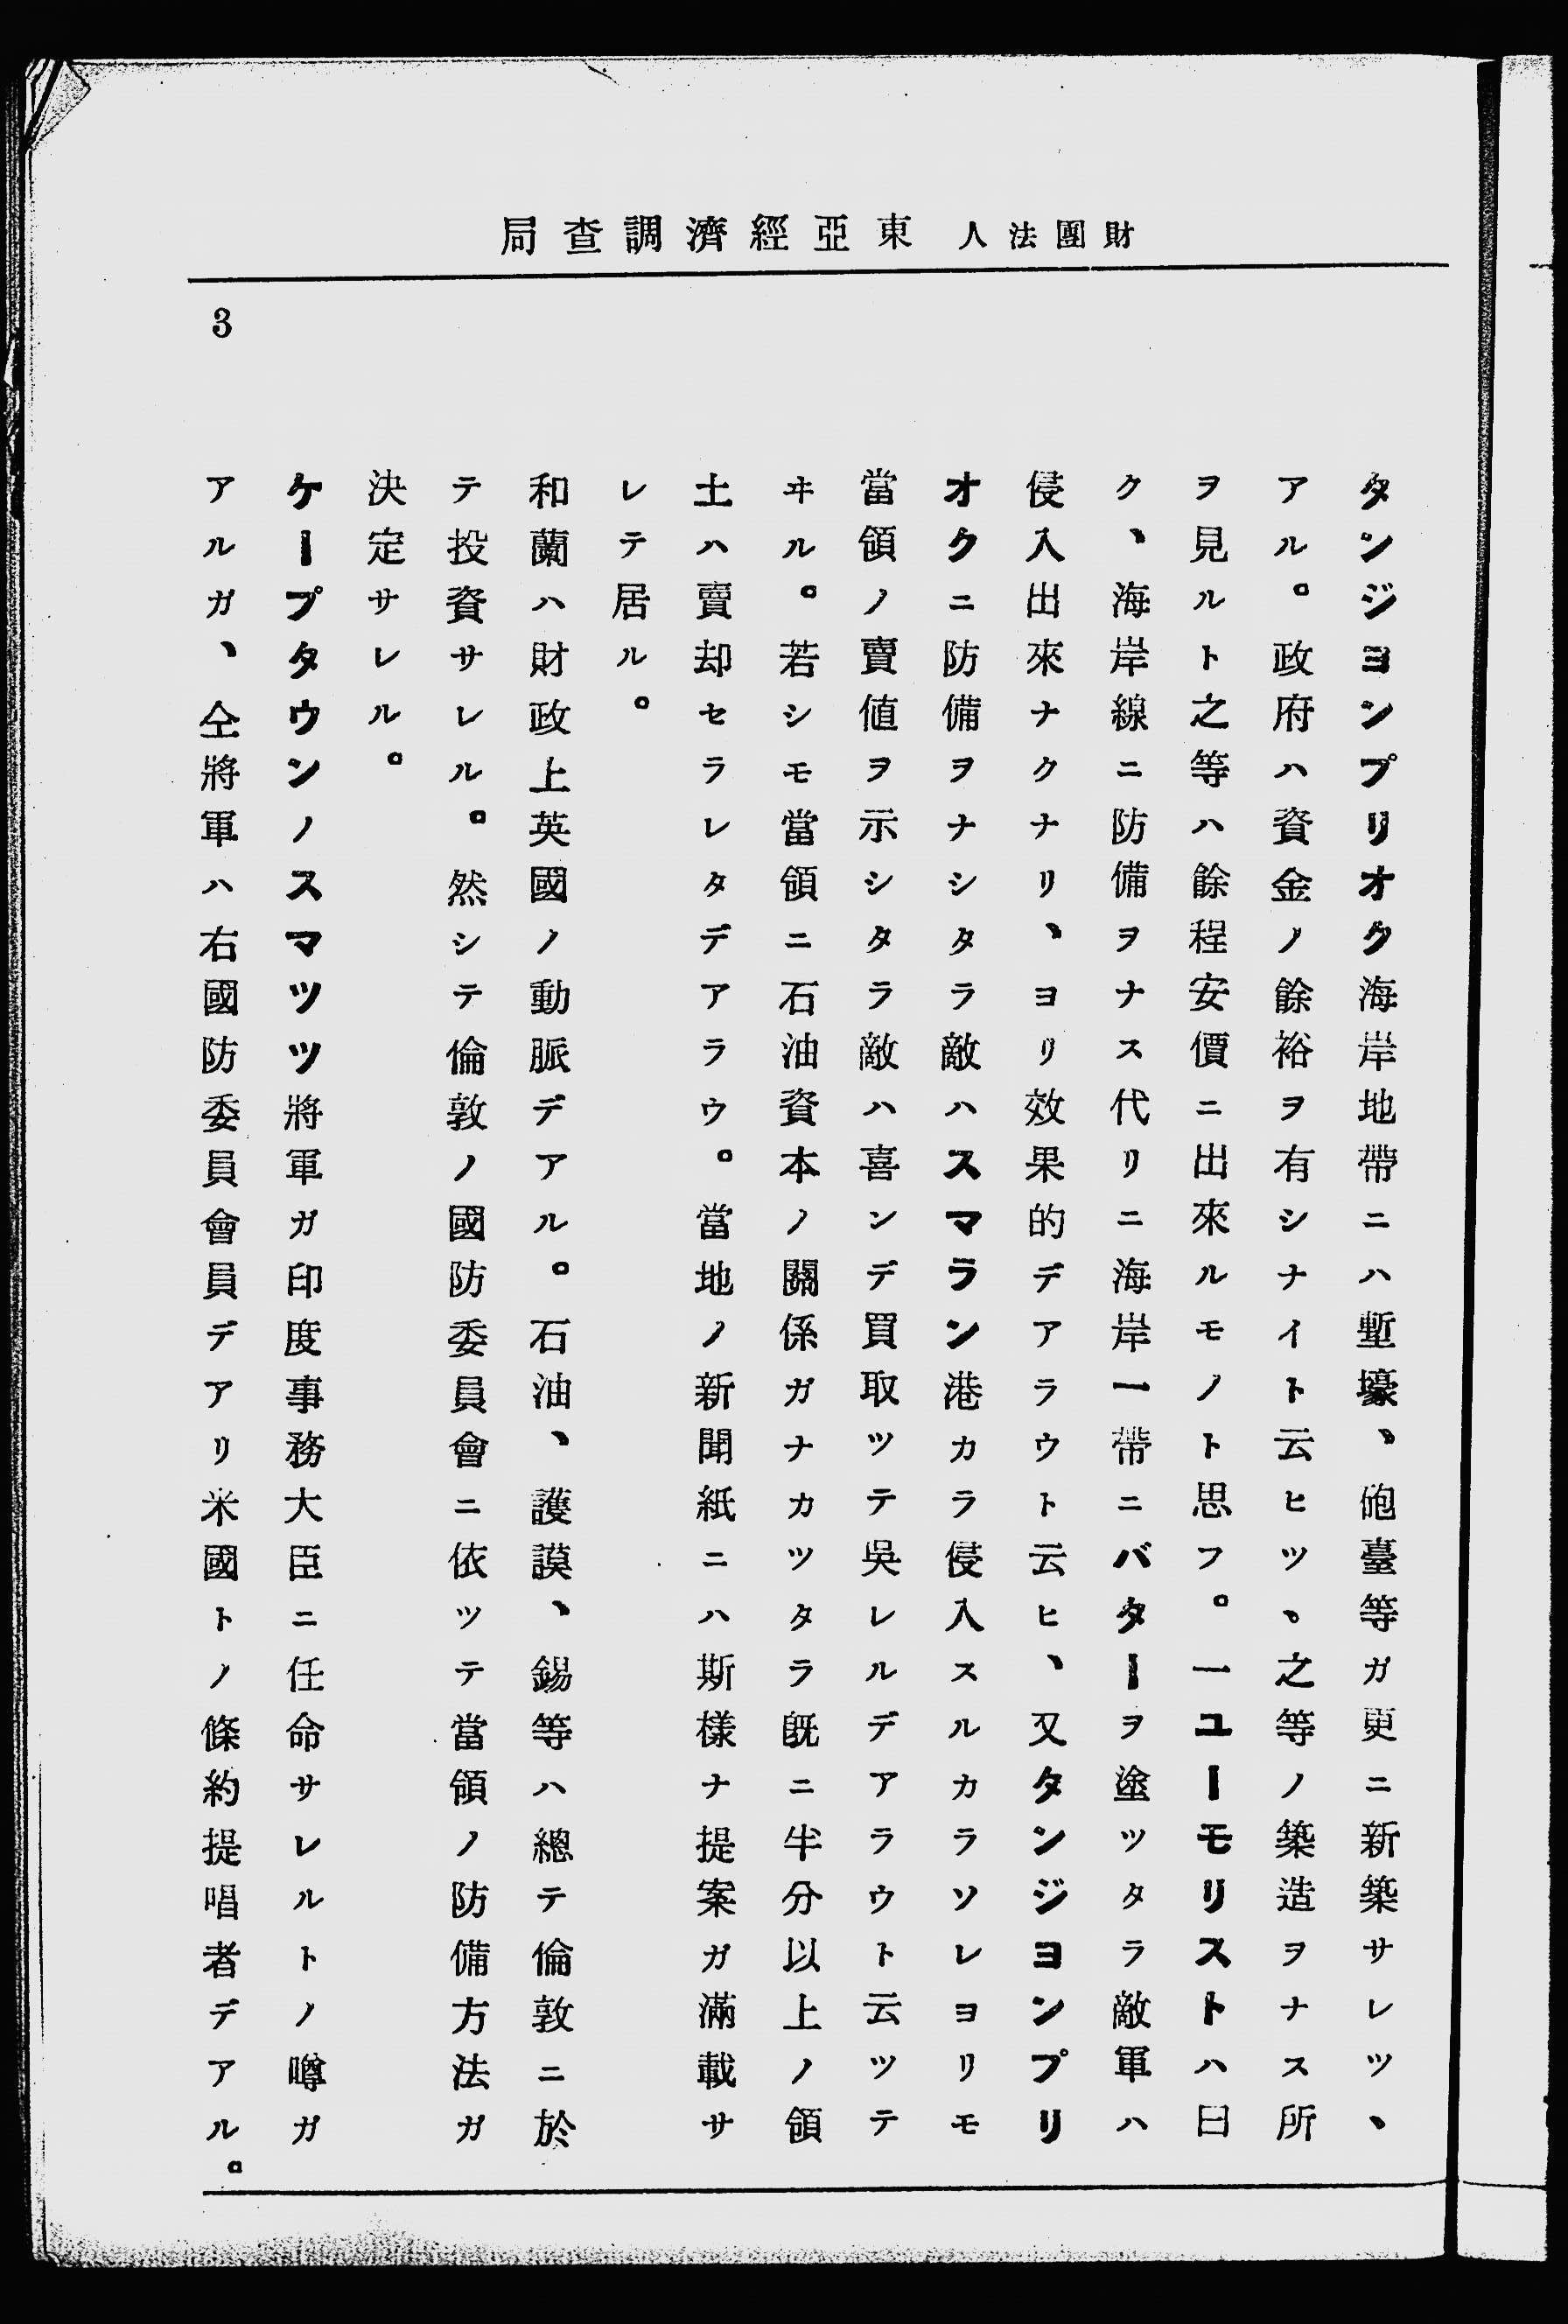 財團法人 東亞經濟調査局
3
タンジヨンプリオク海岸地帶ニハ塹壕、砲臺等ガ更ニ新築サレツヽ
アル。政府ハ資金ノ餘裕ヲ有シナイト云ヒツヽ之等ノ築造ヲナス所
ヲ見ルト之等ハ餘程安價ニ出來ルモノト思フ。一ユーモリストハ曰
ク、海岸線ニ防備ヲナス代リニ海岸一帶ニバターヲ塗ツタラ敵軍ハ
侵入出來ナクナリ、ヨリ效果的デアラウト云ヒ、又タンジヨンプリ
オクニ防備ヲナシタラ敵ハスマラン港カラ侵入スルカラソレヨリモ
當領ノ賣値ヲ示シタラ敵ハ喜ンデ買取ツテ吳レルデアラウト云ツテ
ヰル。若シモ當領ニ石油資本ノ關係ガナカツタラ既ニ半分以上ノ領
土ハ賣却セラレタデアラウ。當地ノ新聞紙ニハ斯樣ナ提案ガ滿載サ
レテ居ル。
和蘭ハ財政上英國ノ動脈デアル。石油、護謨、錫等ハ總テ倫敦ニ於
テ投資サレル。然シテ倫敦ノ國防委員會ニ依ツテ當領ノ防備方法ガ
決定サレル。
ケープタウンノスマツツ將軍ガ印度事務大臣ニ任命サレルトノ噂ガ
アルガ、仝將軍ハ右國防委員會員デアリ米國トノ條約提唱者デアル。